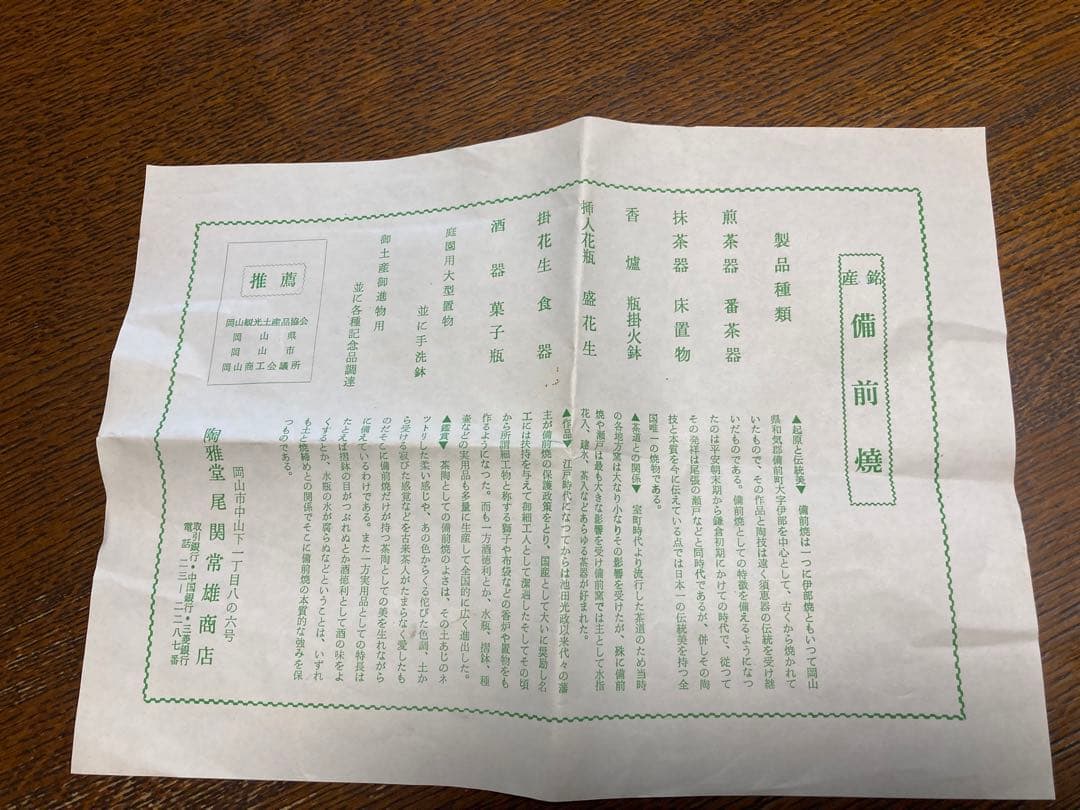 銘産
備前燒
製品種類
煎茶器 番茶器
抹茶器 床置物
香爐 瓶掛火鉢
挿入花瓶 盛花生
掛花生 食器
酒器 菓子瓶
庭園用大型置物
並に手洗鉢
御土産御進物用
並に各種記念品調達
推薦
岡山観光土産品協会
岡山県
岡山市
岡山商工会議所
▲起原と伝統美▼ 備前焼は一つに伊部焼ともいつて岡山
県和気郡備前町大字伊部を中心として、古くから焼かれて
いたもので、その作品と陶技は遠く須恵器の伝統を受け継
いだものである。備前焼としての特徴を備えるようになつ
たのは平安朝末期から鎌倉初期にかけての時代で、従つて
その発祥は尾張の瀬戸などと同時代であるが、併しその陶
技と本質を今に伝えている点では日本一の伝統美を持つ全
国唯一の焼物である。
▲茶道との関係▼ 室町時代より流行した茶道のため当時
の各地方窯は大なり小なりその影響を受けたが、殊に備前
焼や瀬戸は最も大きな影響を受け備前窯では主として水指
花入、建水、茶入などあらゆる茶器が好まれた。
▲作品▼ 江戸時代になつてからは池田光政以来代々の藩
主が備前焼の保護政策をとり、国産として大いに奨励し名
工には扶持を与えて御細工人として潔過したそしてその頃
から所謂細工物と称する獅子や布袋などの香炉や置物をも
作るようになつた。而も一方酒徳利とか、水瓶、摺鉢、種
壷などの実用品も多量に生産して全国的に広く進出した。
▲鑑賞▼ 茶陶としての備前焼のよさは、その土あじのネ
ットリした柔い感じや、あの色からくる佗びた色調、土か
ら受ける寂びた感覚などを古来茶人がたまらなく愛したも
のだそこに備前焼だけが持つ茶陶としての美を生れながら
に備えているわけである。また一方実用品としての特長は
たとえば摺鉢の目がつぶれぬとか酒徳利として酒の味をよ
くするとか、水瓶の水が腐らぬなどということは、いずれ
も土と焼締めとの関係でそこに備前焼の本質的な強みを保
つものである。
岡山市中山下一丁目八の六号
陶雅堂 尾関常雄商店
取引銀行・中国銀行・三菱銀行
電話 二三―二二八七番